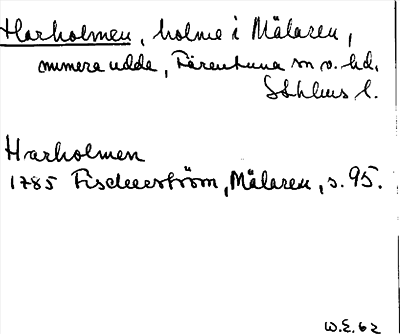 Harholmen, holme i Mälaren,
numera udde, Färentuna sn o. hd.
Sthlms l.
Harholmen
1785 Fischerström, Mälaren, s. 95.
W.E. 62